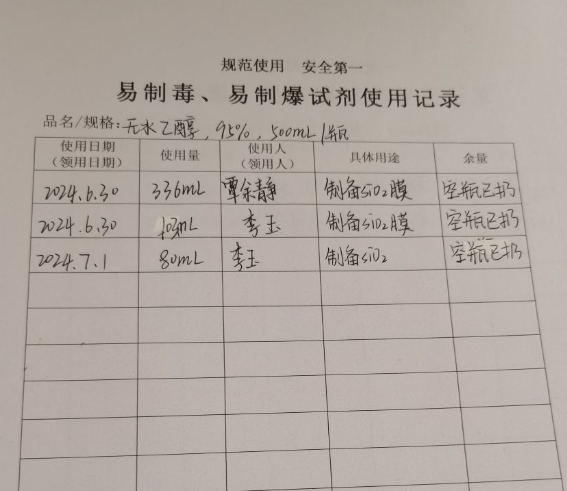 规范使用 安全第一
易制毒、易制爆试剂使用记录
品名/规格:无水乙醇,95%,500mL/瓶
使用日期 使用量 使用人 具体用途 余量
(领用日期) (领用人)
2024.6.30 336mL 覃余静 制备SiO2膜 空瓶已扔
2024.6.30 李玉 制备SiO2膜 空瓶已扔
2024.7.1 80mL 李玉 制备SiO2 空瓶已扔